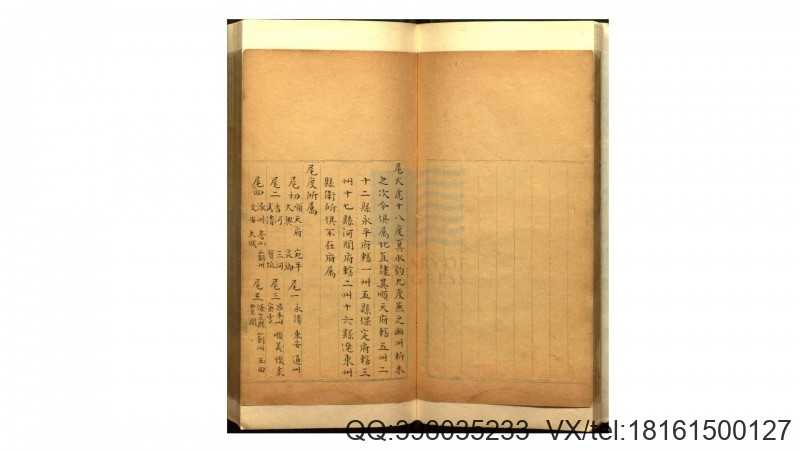 尾火虎十八度真永約九度燕之幽州析木
之次今俱属北直隷其順天府轄五州二
十二縣永平府轄一州五縣保定府轄三
州十七縣河間府轄二州十六縣遼東州
縣衛所俱不在府属
尾度所属
尾初 順天府 大興 宛平 尾一 永清 東安 通州
尾二 三河 尾三 順義 懷柔 密雲
尾四 涿州 薊州 文安 大城 尾五 薊州 玉田
QQ:398035233 VX/tel:18161500127